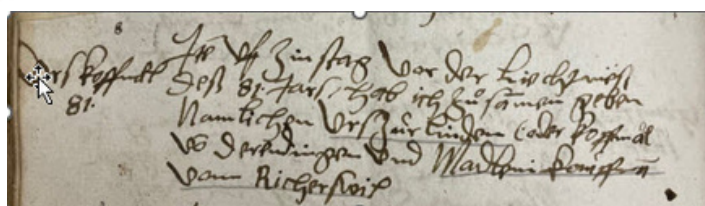 Vrs koffmāl
81.
Jtē vff Zinstag vor der Liechtmäs
deß 81. Jars, hab ich Zůsamen geben
Namlichen Vrs Zur Linden (oder koffmāl
vō Deredingen vnd Madleni
vonn Richerswil